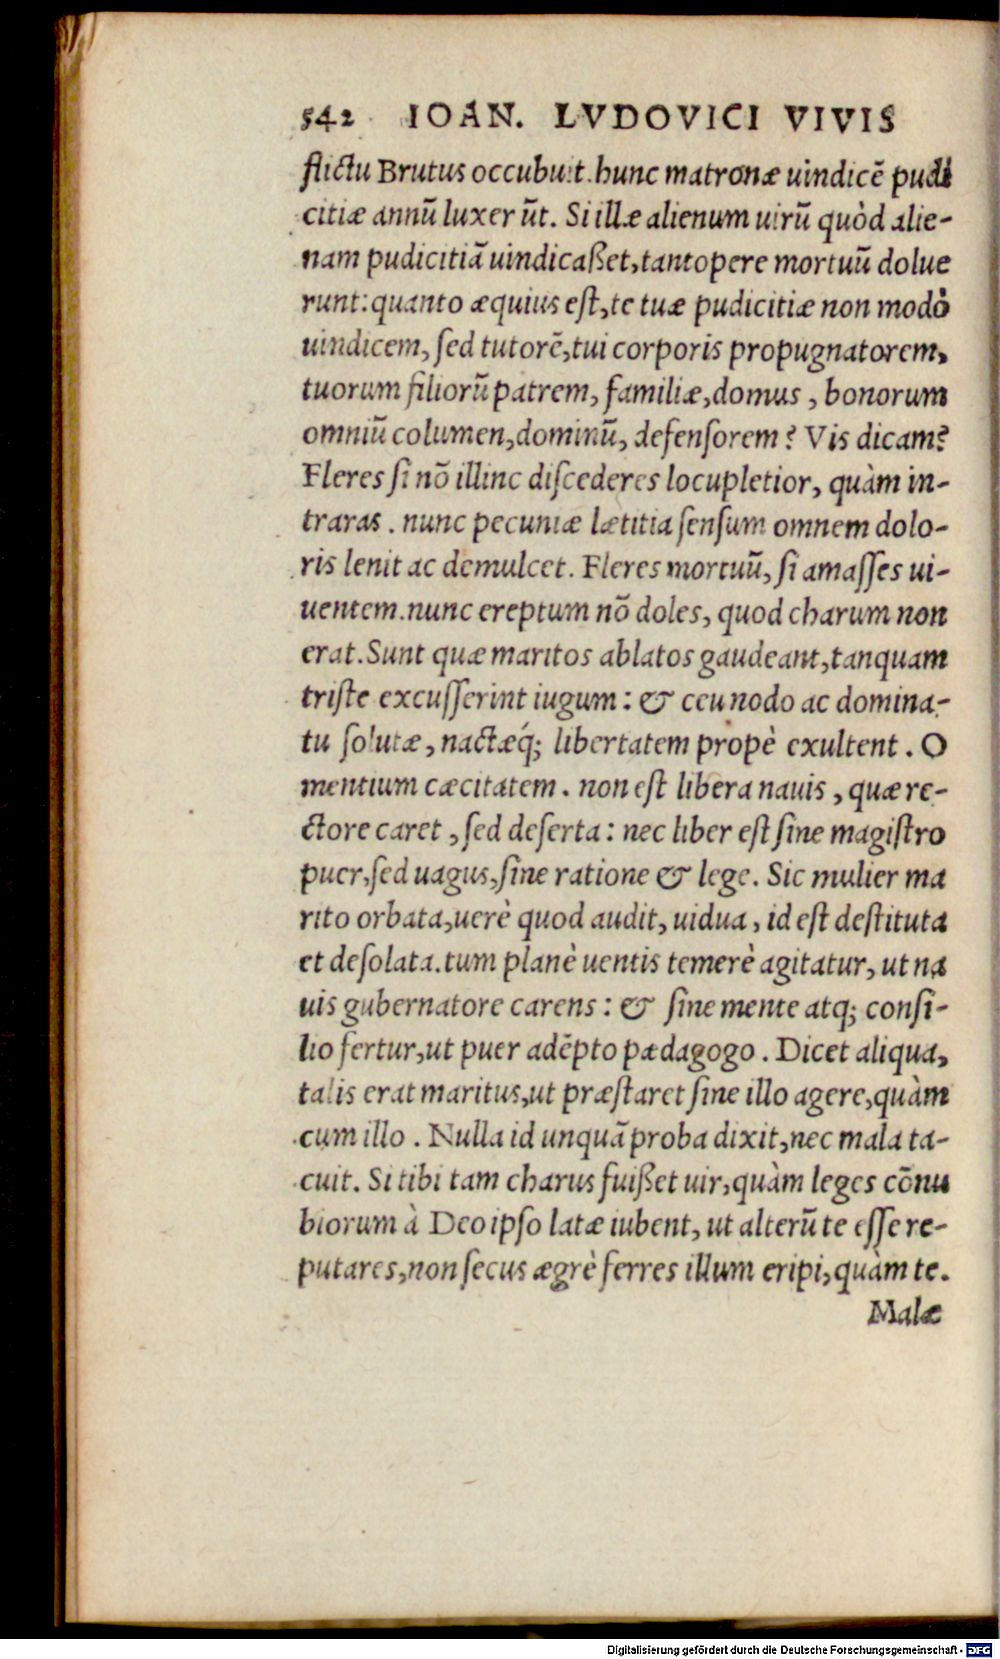 542 IOAN. LVDOVICI VIVIS
flictu Brutus occubuit. hunc matronæ uindicẽ pudi
citiæ annũ luxerũt. Si illæ alienum uirũ quòd alie-
nam pudicitiã uindicaßet, tantopere mortuũ dolue
runt: quanto æquius est, te tuæ pudicitiæ non modò
uindicem, sed tutorẽ, tui corporis propugnatorem,
tuorum filiorũ patrem, familiæ, domus, bonorum
omniũ columen, dominũ, defensorem? Vis dicam?
Fleres si nõ illinc discederes locupletior, quàm in-
traras. nunc pecuniæ lætitia sensum omnem dolo-
ris lenit ac demulcet. Fleres mortuũ, si amasses ui-
uentem. nunc ereptum nõ doles, quod charum non
erat. Sunt quæ maritos ablatos gaudeant, tanquam
triste excusserint iugum: & ceu nodo ac domina-
tu solutæ, nactæq́; libertatem propè exultent. O
mentium cæcitatem. non est libera nauis, quæ re-
ctore caret, sed deserta: nec liber est sine magistro
puer, sed uagus, sine ratione & lege. Sic mulier ma
rito orbata, uerè quod audit, uidua, id est destituta
et desolata. tum planè uentis temerè agitatur, ut na
uis gubernatore carens: & sine mente atq; consi-
lio fertur, ut puer adẽpto pædagogo. Dicet aliqua,
talis erat maritus, ut præstaret sine illo agere, quàm
cum illo. Nulla id unquã proba dixit, nec mala ta-
cuit. Si tibi tam charus fuißet uir, quàm leges cõnu
biorum à Deo ipso latæ iubent, ut alterũ te esse re-
putares, non secus ægrè ferres illum eripi, quàm te.
Malæ
Digitalisierung gefördert durch die Deutsche Forschungsgemeinschaft - DFG